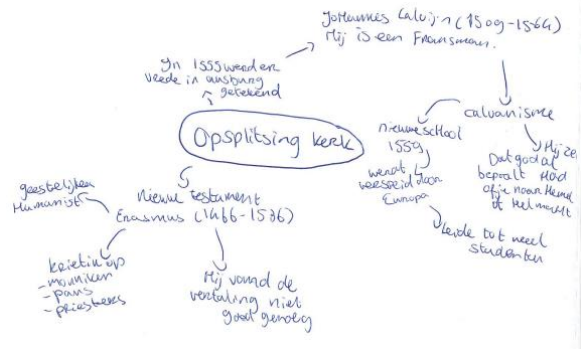 Johannes Calvijn (1509-1564)
Hij is een Fransman.
In 1555 werd er
vrede in ausburg
getekend
Opsplitsing kerk
calvanisme
nieuwe school
1559
werdt
verspreid door
Europa
leide tot veel
studenten
Hij zei
Dat god al
bepaalt Had
of je naar Hemel
of Hel macht
Nieuwe testament
Erasmus (1466-1536)
geestelijken
Humanist
kritiek op
- monniken
- paus
- priesters
Hij vond de
vertaling niet
goed genoeg